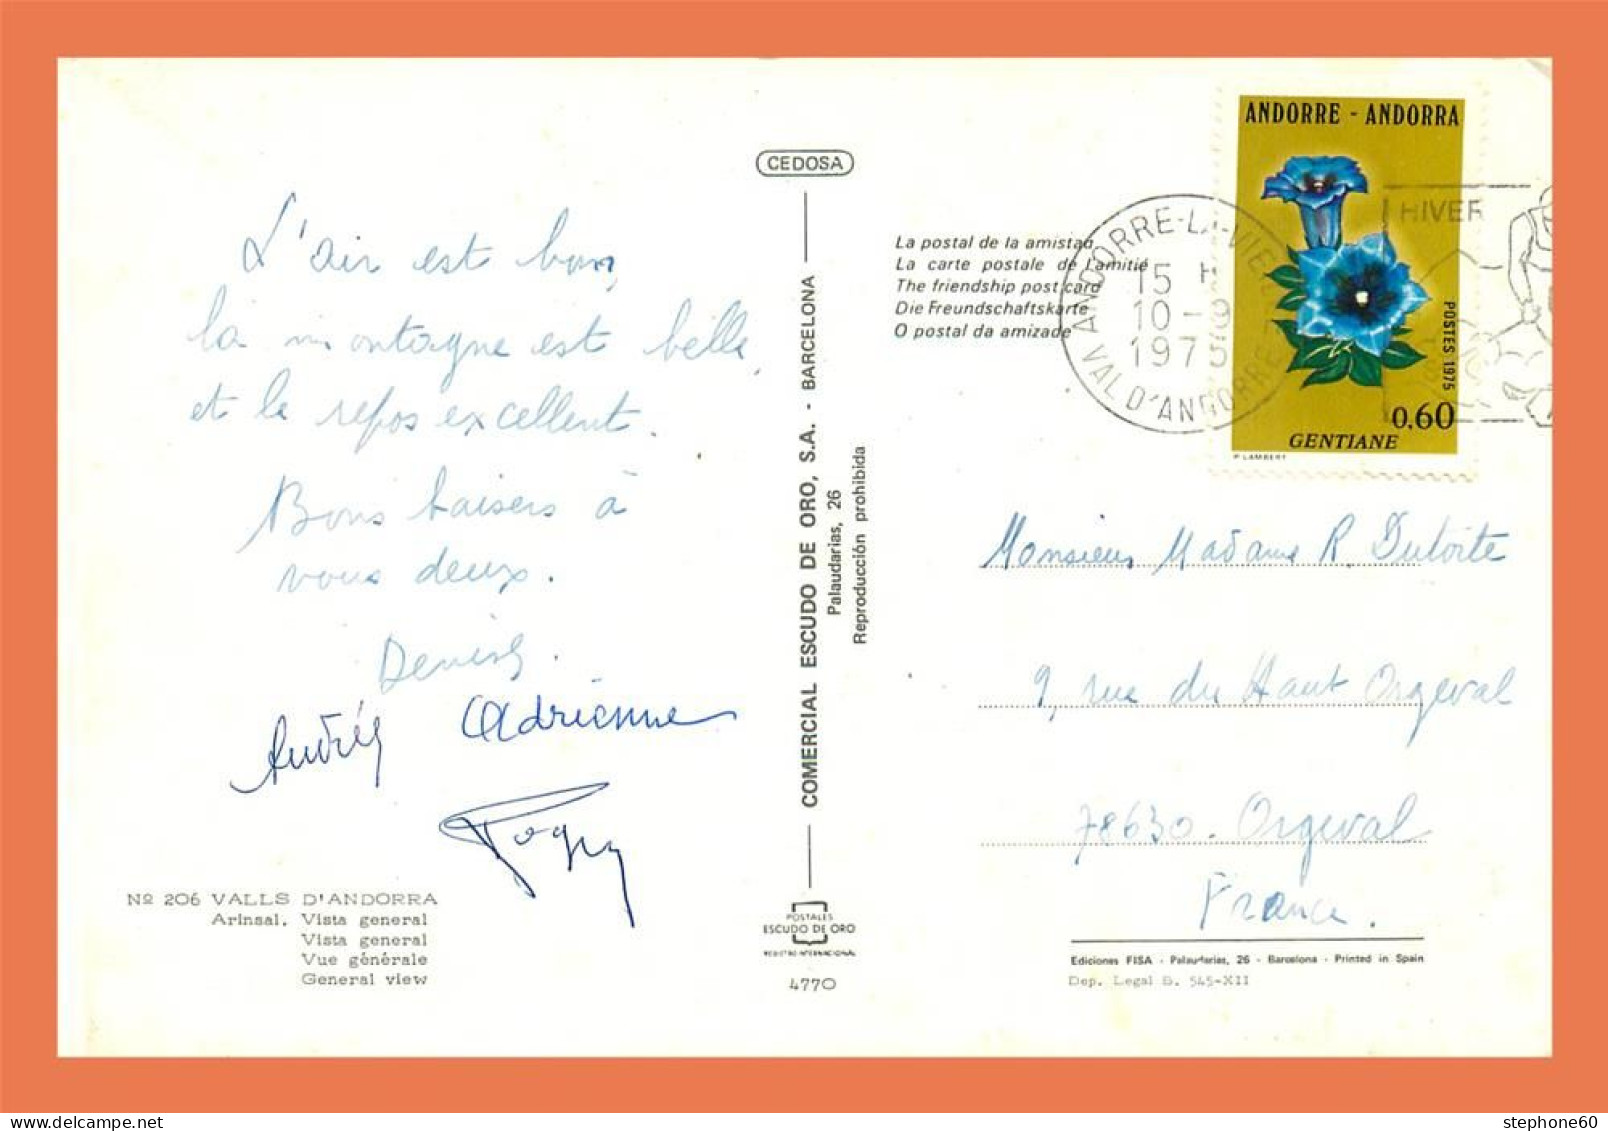 L'air est bon,
la montagne est belle,
et le repos excellent.
Bons baisers à
vous deux.
Denise.
Andrée Adrienne
Roger
Nº 206 VALLS D'ANDORRA
Arinsal. Vista general
Vista general
Vue générale
General view
CEDOSA
COMERCIAL ESCUDO DE ORO, S.A. - BARCELONA
Palaudarias, 26
Reproducción prohibida
POSTALES
ESCUDO DE ORO
REGISTRO INTERNACIONAL
4770
La postal de la amistad
La carte postale de l'amitié
The friendship post card
Die Freundschaftskarte
O postal da amizade
ANDORRE-LA-VIEILLE
15 H
10-9
1975
VAL D'ANDORRE
HIVER
ANDORRE - ANDORRA
POSTES 1975
0.60
GENTIANE
P. LAMBERT
Monsieur Madame R. Dutoite
9, rue du Haut Orgeval
78630. Orgeval
France.
Ediciones FISA - Palaudarias, 26 - Barcelona - Printed in Spain
Dep. Legal B. 545-XII
stephone60